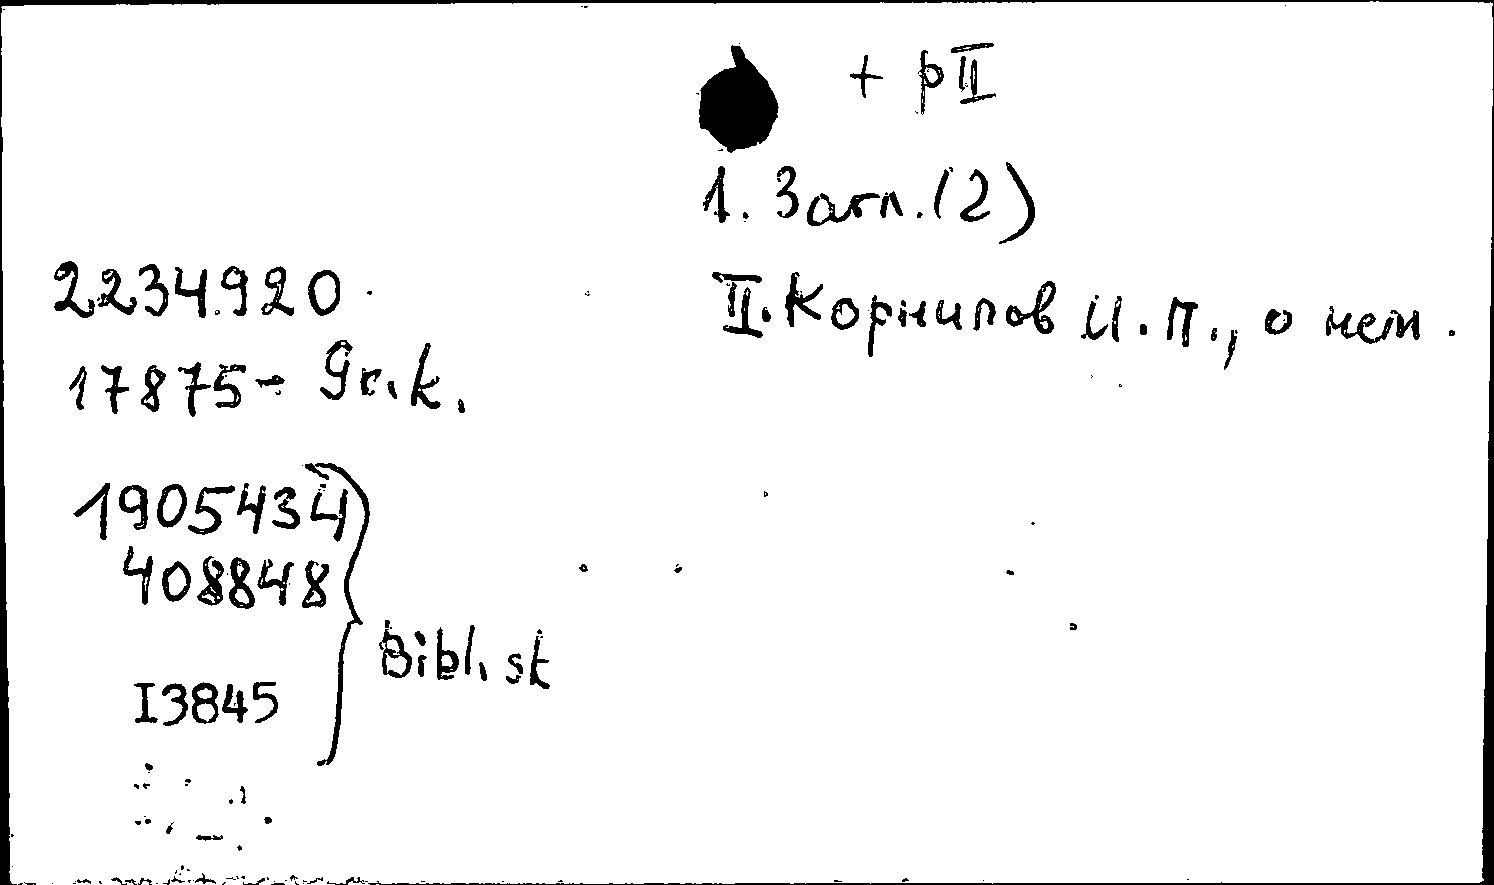 + pII
1. Загл. (2)
II. Корнилов И. П., о нем.
2234920
17875 - Gr. k.
1905434
408848
Bibl. sk
I3845